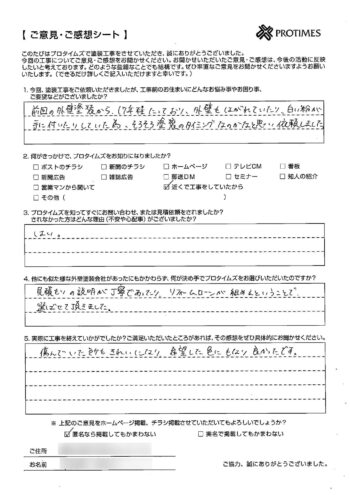 【 ご意見・ご感想シート 】
PROTIMES
このたびはプロタイムズで塗装工事をさせていただき、誠にありがとうございました。
今回の工事についてご意見・ご感想をお聞かせください。お聞かせいただいたご意見・ご感想は、今後の活動に反映
したいと考えております。どのような些細なことでも結構です。ぜひ率直なご意見をお聞かせくださいますようお願い
いたします。(できるだけ詳しくご記入いただけますと幸いです。)
1. 今回、塗装工事をご依頼いただきましたが、工事前のお住まいにどんなお悩み事やお困り事、
ご要望などがございましたか?
前回の外壁塗装から、17年経っており、外壁もはがれていたり、白い粉が
手に付いたりしていた為、そろそろ塗装のタイミングなのかなと思い依頼しました
2. 何がきっかけで、プロタイムズをお知りになりましたか?
□ ポストのチラシ □ 新聞のチラシ □ ホームページ □ テレビCM □ 看板
□ 新聞広告 □ 雑誌広告 □ 郵送DM □ セミナー □ 知人の紹介
□ 営業マンから聞いて ☑ 近くで工事をしていたから
□ その他 ( )
3. プロタイムズを知ってすぐにお問い合わせ、または見積依頼をされましたか?
されなかった方はどんな理由(不安や心配事)がございましたか?
はい。
4. 他にも似た様な外壁塗装会社があったにもかかわらず、何が決め手でプロタイムズをお選びいただいたのですか?
見積もりの説明が丁寧であったり、リフォームローンが組めるということで、
選ばせて頂きました。
5. 実際に工事を終えていかがでしたか?ご満足いただいたところがあれば、その感想をぜひ具体的にお聞かせください。
傷んでいた所もきれいになり、希望した色にもなり良かったです。
※ 上記のご意見をホームページ掲載、チラシ掲載させていただいてもよろしいでしょうか?
☑ 匿名なら掲載してもかまわない □ 実名で掲載してもかまわない
ご住所
お名前
ご協力、誠にありがとうございました。